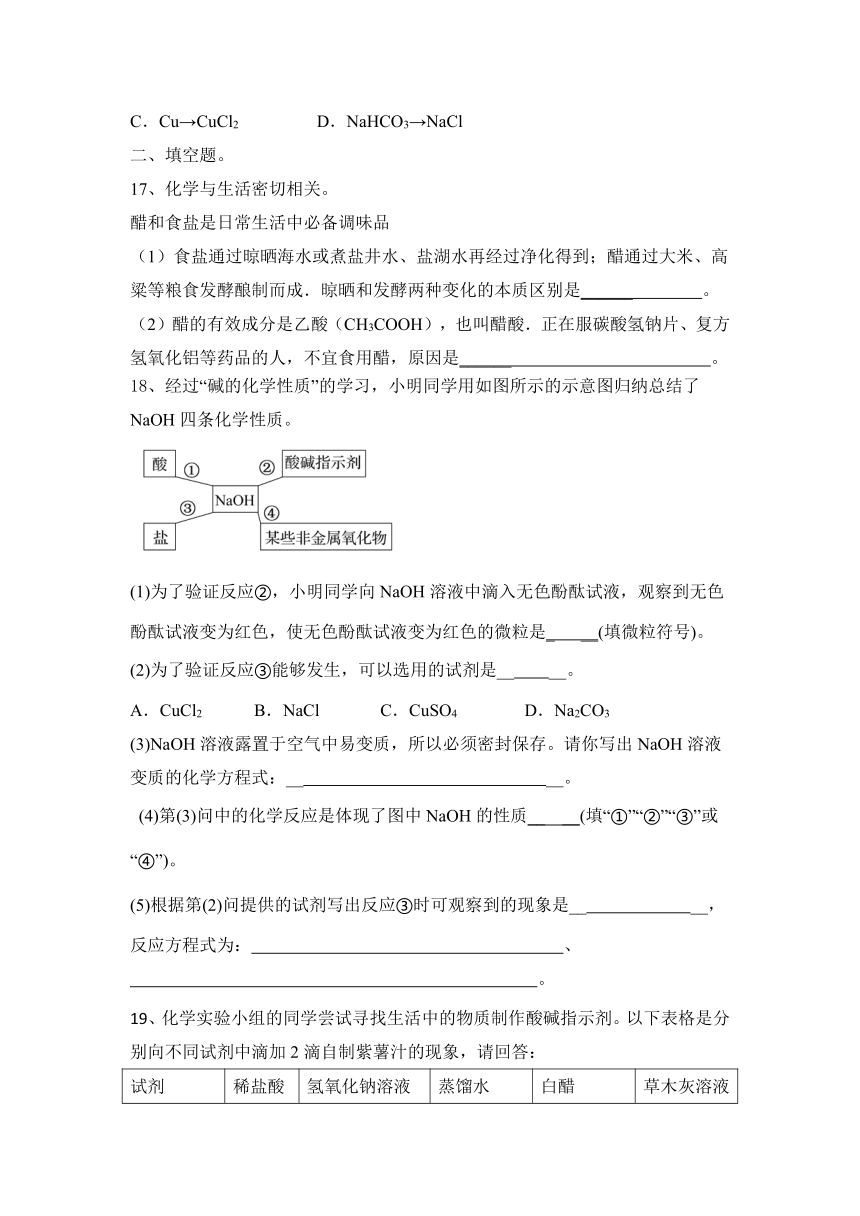 C．Cu→CuCl₂ D．NaHCO₃→NaCl
二、填空题。
17、化学与生活密切相关。
醋和食盐是日常生活中必备调味品
（1）食盐通过晾晒海水或煮盐井水、盐湖水再经过净化得到；醋通过大米、高
粱等粮食发酵酿制而成．晾晒和发酵两种变化的本质区别是____________。
（2）醋的有效成分是乙酸（CH₃COOH），也叫醋酸．正在服碳酸氢钠片、复方
氢氧化铝等药品的人，不宜食用醋，原因是____________________。
18、经过“碱的化学性质”的学习，小明同学用如图所示的示意图归纳总结了
NaOH 四条化学性质。
酸 ① ② 酸碱指示剂
NaOH
③ ④
盐 某些非金属氧化物
(1)为了验证反应②，小明同学向 NaOH 溶液中滴入无色酚酞试液，观察到无色
酚酞试液变为红色，使无色酚酞试液变为红色的微粒是______(填微粒符号)。
(2)为了验证反应③能够发生，可以选用的试剂是________。
A．CuCl₂ B．NaCl C．CuSO₄ D．Na₂CO₃
(3)NaOH 溶液露置于空气中易变质，所以必须密封保存。请你写出 NaOH 溶液
变质的化学方程式：____________________________。
(4)第(3)问中的化学反应是体现了图中 NaOH 的性质______(填“①”“②”“③”或
“④”)。
(5)根据第(2)问提供的试剂写出反应③时可观察到的现象是______________，
反应方程式为：______________________________、
________________________________________。
19、化学实验小组的同学尝试寻找生活中的物质制作酸碱指示剂。以下表格是分
别向不同试剂中滴加 2 滴自制紫薯汁的现象，请回答：
试剂 稀盐酸 氢氧化钠溶液 蒸馏水 白醋 草木灰溶液